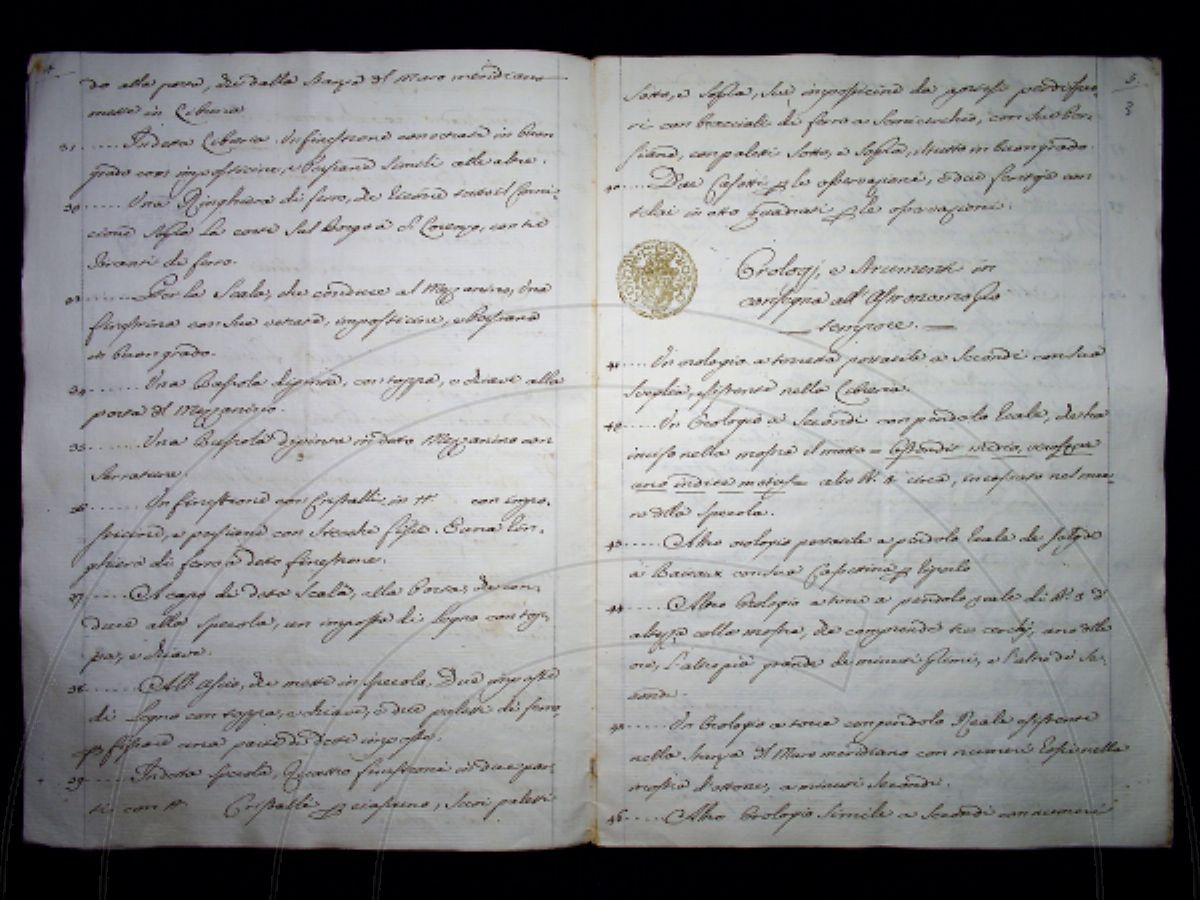 do alla porta, che dalla stanza del Muro meridiano
mette in Libreria
31 ...... In detta Libreria Un finestrone con vetrate in buon
grado con imposticine, e Persiane simili alle altre.
Una Ringhiera di ferro, che
sopra la corte sul Borgo di S. Lorenzo, con tre
di ferro.
Per la Scala, che conduce al Mezzanino, Una
finestrina con sua vetrata, imposticine, e Persiana
in buon grado.
34 ...... Una Bussola dipinta, con toppa, e chiave alla
porta del Mezzanino.
35 ...... Una Bussola dipinta in detto Mezzanino con
serratura.
36 ...... Un finestrone con Cristalli in N. con impo-
sticine, e persiane con Stecche fisse. E una Rin-
ghiera di ferro a detto finestrone.
37 ...... A capo di detta Scala, alla Porta, che con-
duce alla Specola, un imposta di legno con top-
pa, e chiave.
38 ...... All' Uscio, che mette in Specola, Due imposte
di Legno con toppa, e chiave, e due paletti di ferro,
p fissare una parte di dette imposte.
39 ...... In detta Specola, Quattro finestroni in due par-
ti con N. Cristalli p ciascuno, Suoi paletti
3
sotto, e sopra, sue imposticine da
ri con bracciali di ferro a Semicerchio, con sue Per-
siane, con paletti sotto, e sopra, il tutto in buon grado.
40 ...... Due Casotti p le osservazioni, e due
telai in otto quadrati p le osservazioni.
Orologi, e Strumenti in
consegna all' Astronomo p
tempore.
41 ...... Un orologio a torretta portatile a Secondi con sua
Sveglia, esistente nella Libreria.
42 ...... Un Orologio a Secondi con pendolo Reale, che ha
inciso nella mostra il motto =
uno indice = alto N. 3 circa, incastrato nel mu-
ro della Specola.
43 ...... Altro orologio portatile a pendolo Reale
con sua Cassettina p
44 ...... Altro Orologio a torre a pendolo reale di N. 3 d'
altezza colla mostra, che comprende tre cerchj, uno delle
ore, l'altro più grande de minuti primi, e l'altro de Se-
condi.
45 ...... Un Orologio a torre con pendolo Reale esistente
nella stanza del Muro meridiano con numeri nella
mostra d'ottone, a minuti Secondi.
46 ...... Altro Orologio Simile a Secondi con numeri